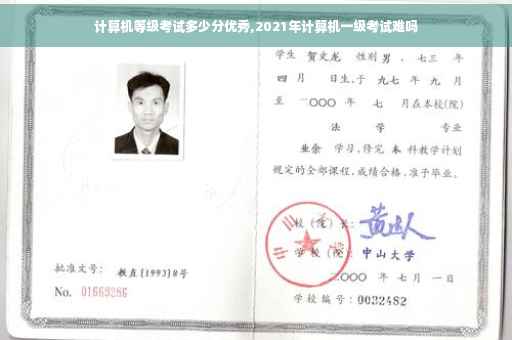 计算机等级考试多少分优秀,2021年计算机一级考试难吗
学生 贺文龙 性别 男 、七三 年
四 月 日生,于 九七 年 九 月
至 二〇〇〇 年 七 月在本校(院)
法 学 专业
业余 学习,修完 本 科教学计划
规定的全部课程,成绩合格,准予毕业。
校(院)长:
学 校(院): 中山大学
二〇〇〇 年 七 月 一 日
批准文号: 教直[1993]8号
No. 01663286
学校编号: 0032482